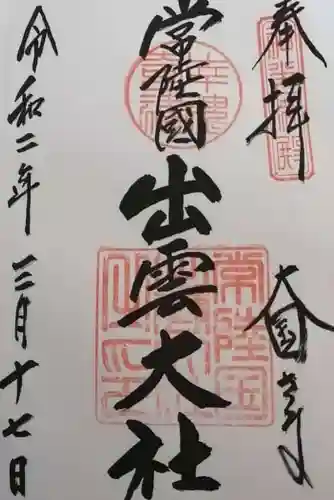 奉拝
大国さま
常陸國
出雲大社
令和二年三月十七日